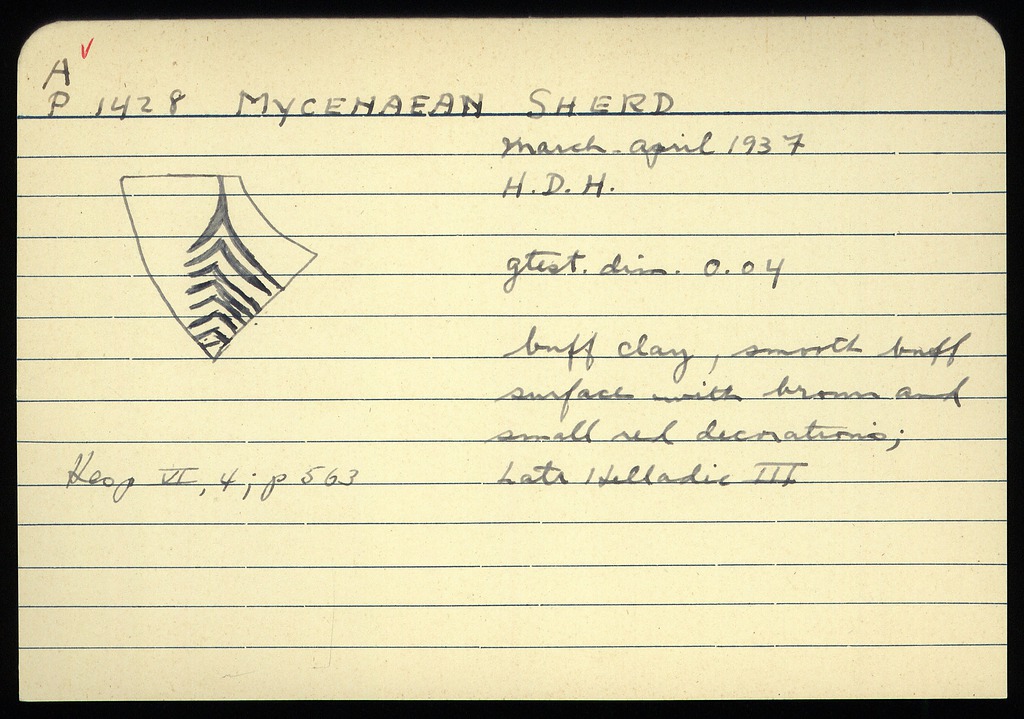 A
P 1428 MYCENAEAN SHERD
March-April 1937
H.D.H.
gtest. dim. 0.04
buff clay, smooth buff
surface with brown and
small red decorations;
Late Helladic III
Hesp VI, 4; p 563